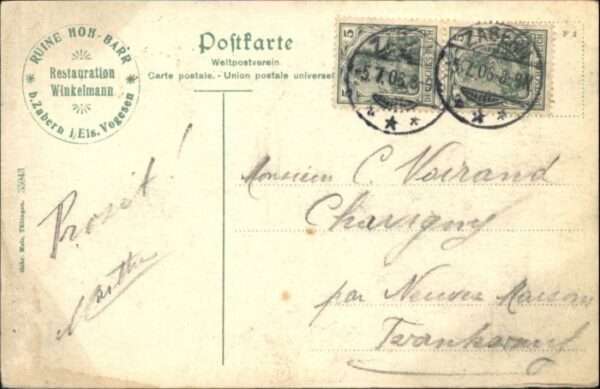 RUINE HOH-BARR
Restauration
Winkelmann
b. Zabern i. Els. Vogesen
Postkarte
Weltpostverein.
Carte postale. - Union postale universelle
5
5
ZABERN
-5.7.06.8
ZABERN
5.7.06.8-9N
Gebr. Metz, Tübingen.
Prosit!
Marthe
Monsieur C. Voirand
Charigny
par Neuves Maisons
Frankreich